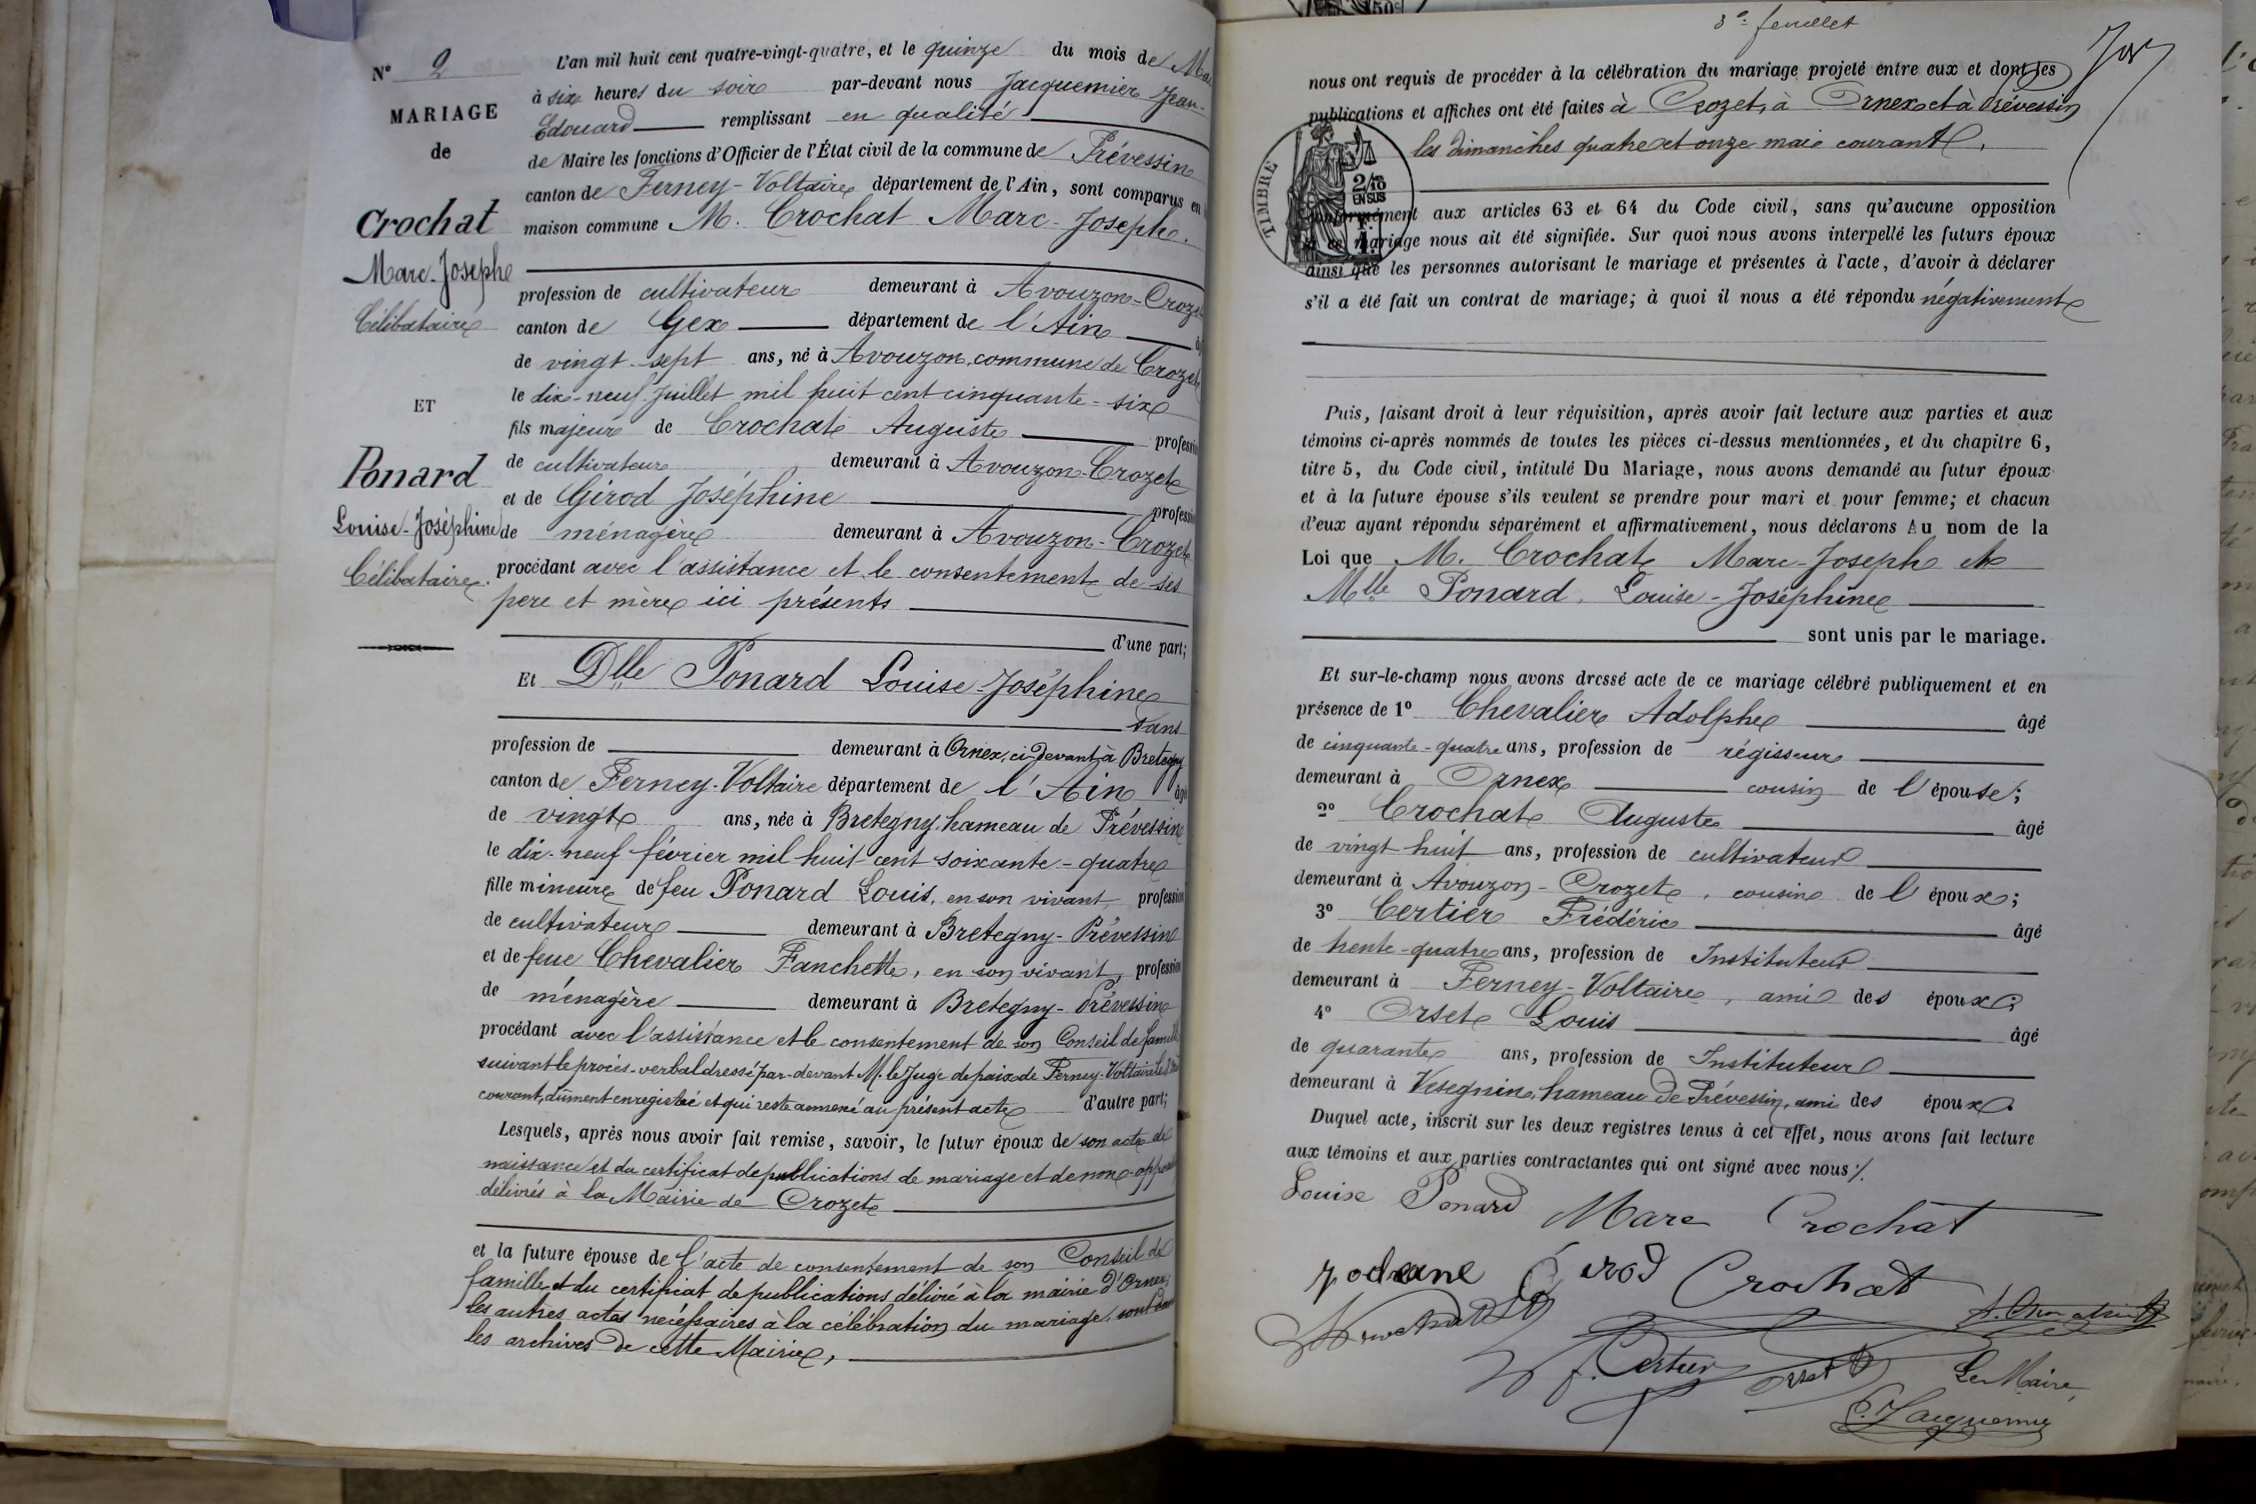 N° 2
MARIAGE
de
Crochat
Marc-Joseph
Célibataire
ET
Ponard
Louise-Joséphine
Célibataire.
L'an mil huit cent quatre-vingt-quatre, et le quinze du mois de Mai
à six heures du soir par-devant nous Jacquemier Jean-
Edouard remplissant en qualité
de Maire les fonctions d'Officier de l'État civil de la commune de Prévessin
canton de Ferney-Voltaire département de l'Ain, sont comparus en
maison commune M. Crochat Marc-Joseph.
profession de cultivateur demeurant à Avouzon-Crozet
canton de Gex département de l'Ain
de vingt-sept ans, né à Avouzon, commune de Crozet
le dix-neuf Juillet mil huit cent cinquante-six
fils majeur de Crochat Auguste profession
de cultivateur demeurant à Avouzon-Crozet
et de Girod Joséphine profession
de ménagère demeurant à Avouzon-Crozet
procédant avec l'assistance et le consentement de ses
père et mère ici présents
d'une part;
Et Dlle Ponard Louise-Joséphine
sans
profession de demeurant à Ornex, ci-devant à Bretegny
canton de Ferney-Voltaire département de l'Ain âgée
de vingt ans, née à Bretegny, hameau de Prévessin
le dix-neuf février mil huit cent soixante-quatre
fille mineure de feu Ponard Louis, en son vivant, profession
de cultivateur demeurant à Bretegny-Prévessin
et de feue Chevalier Fanchette, en son vivant, profession
de ménagère demeurant à Bretegny-Prévessin
procédant avec l'assistance et le consentement de son Conseil de famille
suivant le procès-verbal dressé par-devant M. le Juge de paix de Ferney-Voltaire le
courant, dûment enregistré et qui reste annexé au présent acte d'autre part;
Lesquels, après nous avoir fait remise, savoir, le futur époux de son acte de
naissance et du certificat de publications de mariage et de non-opposition
délivrés à la Mairie de Crozet
et la future épouse de l'acte de consentement de son Conseil de
famille et du certificat de publications délivré à la mairie d'Ornex;
les autres actes nécessaires à la célébration du mariage, sont dans
les archives de cette Mairie,
3e feuillet
nous ont requis de procéder à la célébration du mariage projeté entre eux et dont les
publications et affiches ont été faites à Crozet, à Ornex et à Prévessin
les dimanches quatre et onze mai courant.
TIMBRE
2/10
EN SUS
conformément aux articles 63 et 64 du Code civil, sans qu'aucune opposition
à ce mariage nous ait été signifiée. Sur quoi nous avons interpellé les futurs époux
ainsi que les personnes autorisant le mariage et présentes à l'acte, d'avoir à déclarer
s'il a été fait un contrat de mariage; à quoi il nous a été répondu négativement
Puis, faisant droit à leur réquisition, après avoir fait lecture aux parties et aux
témoins ci-après nommés de toutes les pièces ci-dessus mentionnées, et du chapitre 6,
titre 5, du Code civil, intitulé Du Mariage, nous avons demandé au futur époux
et à la future épouse s'ils veulent se prendre pour mari et pour femme; et chacun
d'eux ayant répondu séparément et affirmativement, nous déclarons Au nom de la
Loi que M. Crochat Marc-Joseph et
Mlle Ponard, Louise-Joséphine
sont unis par le mariage.
Et sur-le-champ nous avons dressé acte de ce mariage célébré publiquement et en
présence de 1° Chevalier Adolphe âgé
de cinquante-quatre ans, profession de régisseur
demeurant à Ornex cousin de l'épouse;
2° Crochat Auguste âgé
de vingt huit ans, profession de cultivateur
demeurant à Avouzon-Crozet, cousin de l'époux;
3° Certier Frédéric âgé
de trente-quatre ans, profession de Instituteur
demeurant à Ferney-Voltaire, ami des époux;
4° Orset Louis âgé
de quarante ans, profession de Instituteur
demeurant à Vesegnin, hameau de Prévessin, ami des époux.
Duquel acte, inscrit sur les deux registres tenus à cet effet, nous avons fait lecture
aux témoins et aux parties contractantes qui ont signé avec nous ./.
Louise Ponard Marc Crochat
Girod Crochat
f. Certier Orset Le Maire,
E. Jacquemier